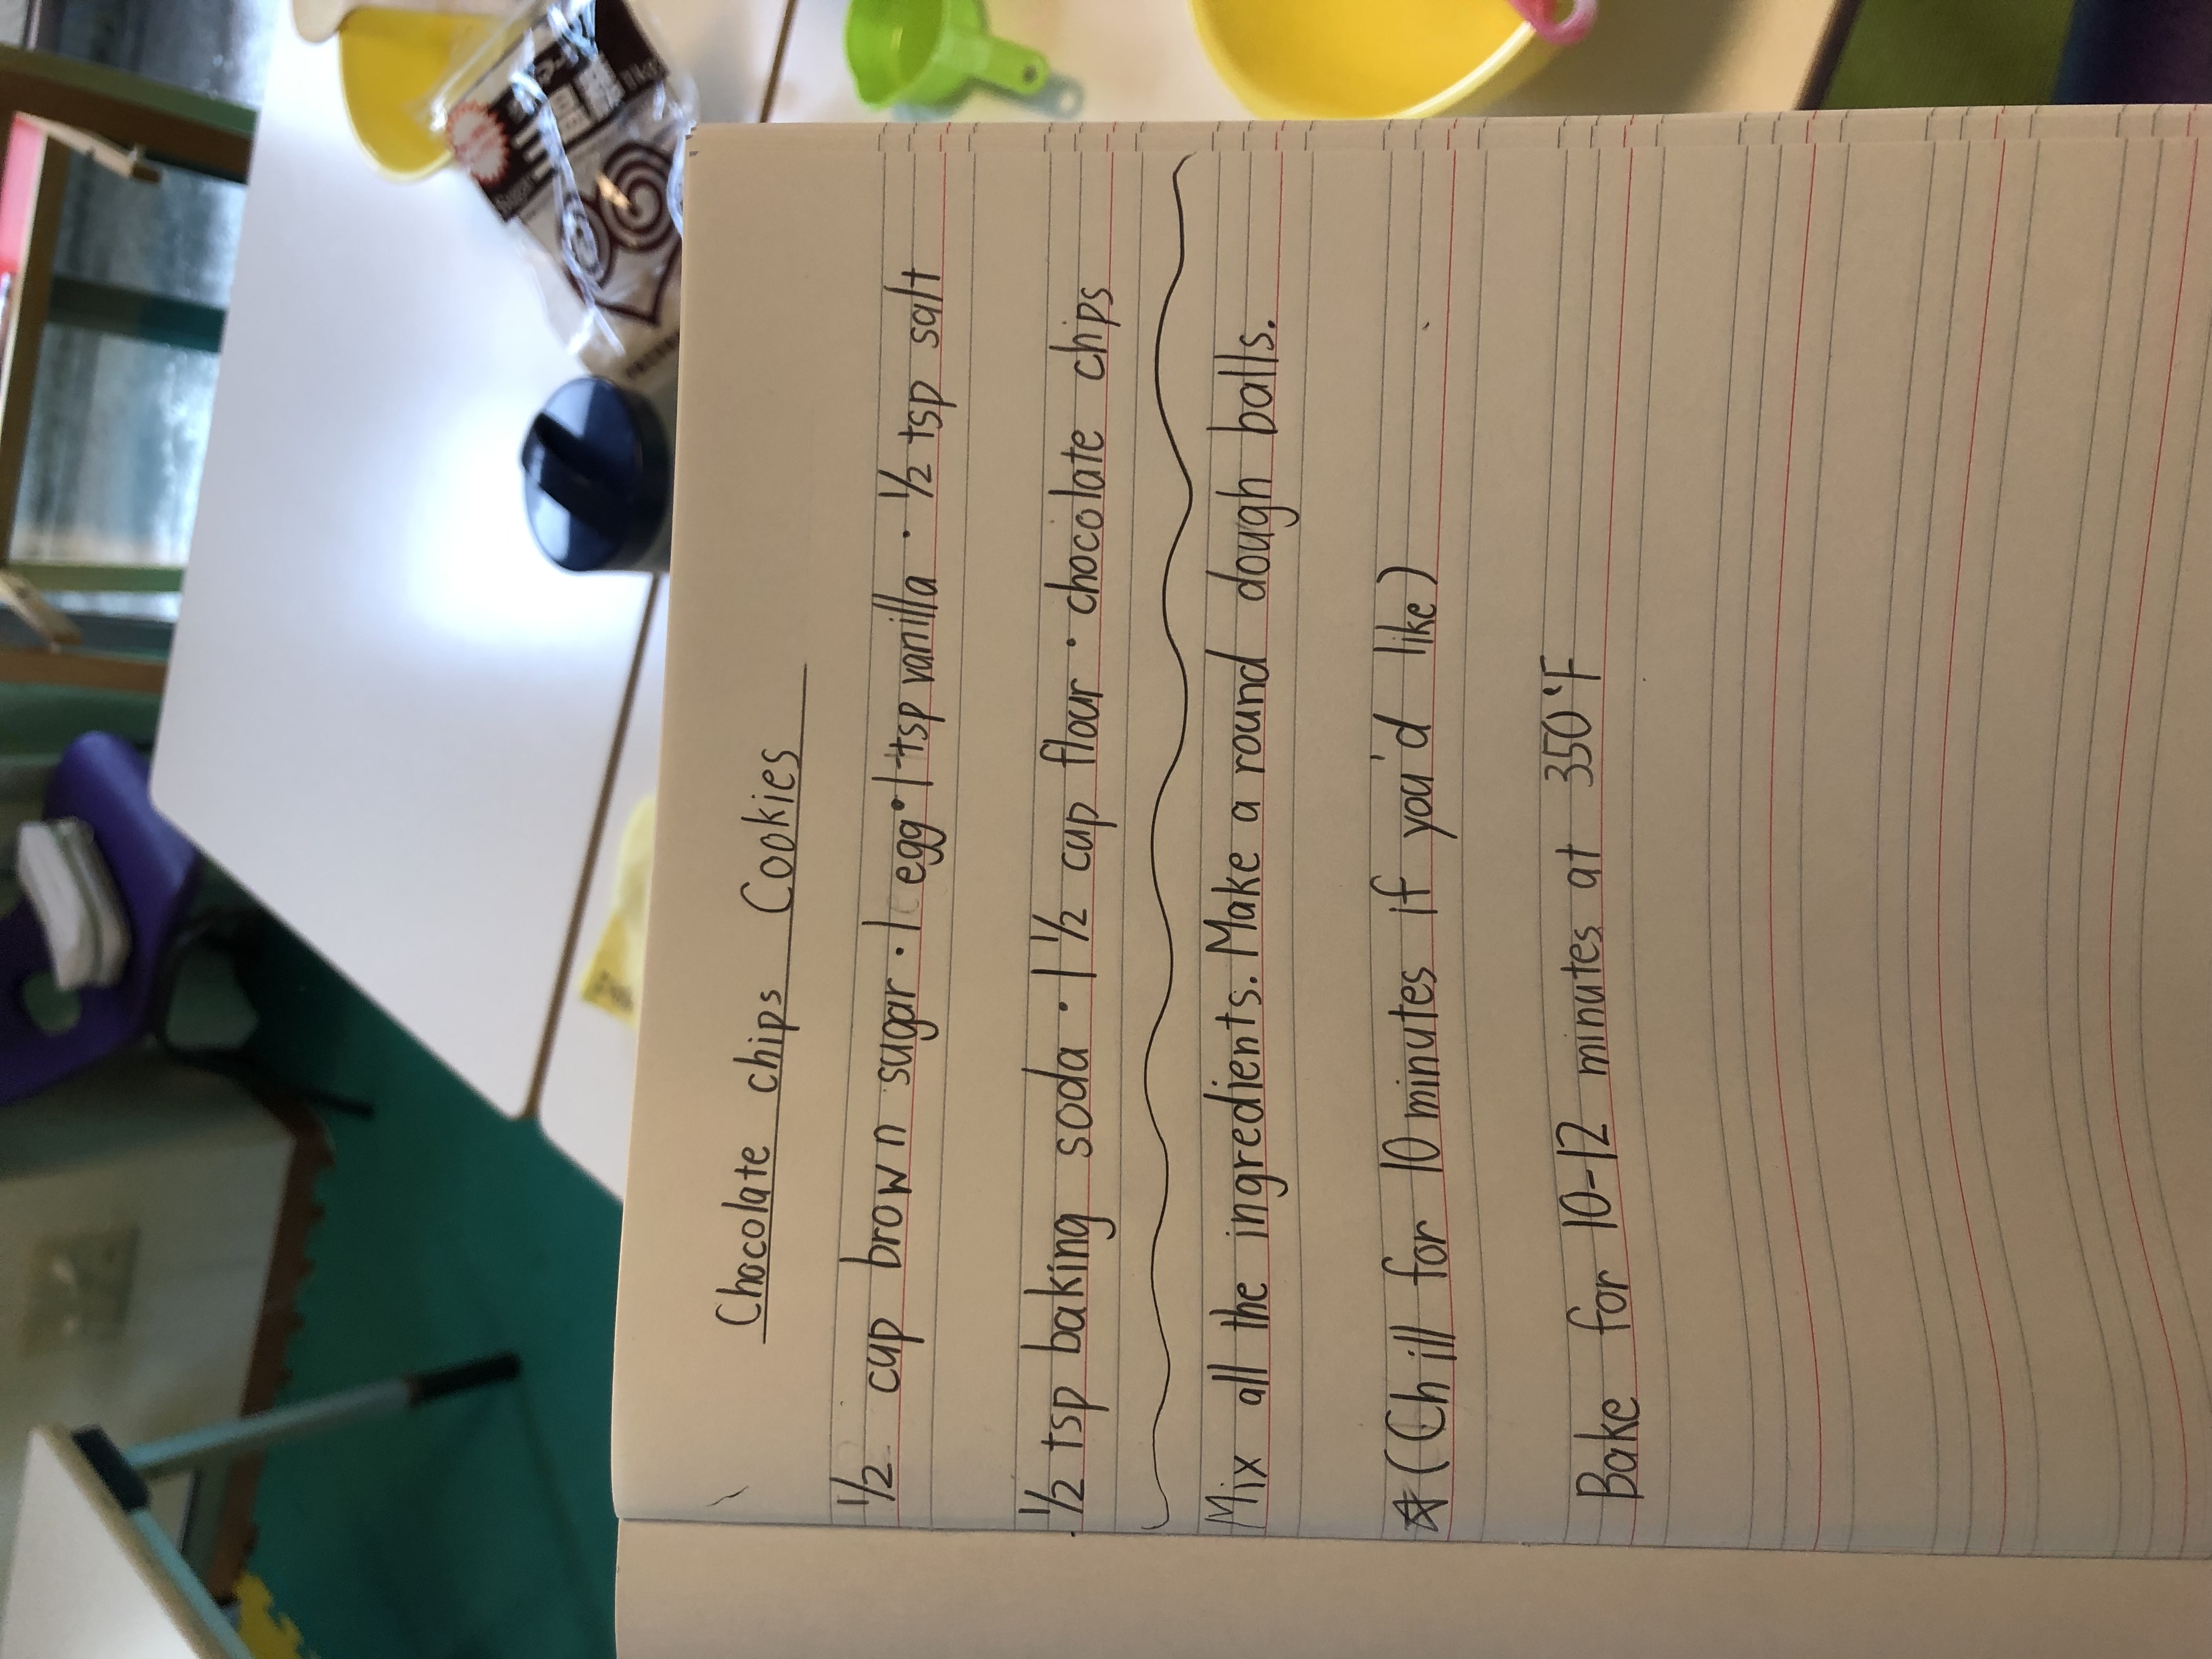 Chocolate chips Cookies
1/2 cup brown sugar · 1 egg · 1 tsp vanilla · 1/2 tsp salt
· 1/2 tsp baking soda · 1 1/2 cup flour · chocolate chips
Mix all the ingredients. Make a round dough balls.
☆ (Chill for 10 minutes if you'd like)
Bake for 10-12 minutes at 350°F